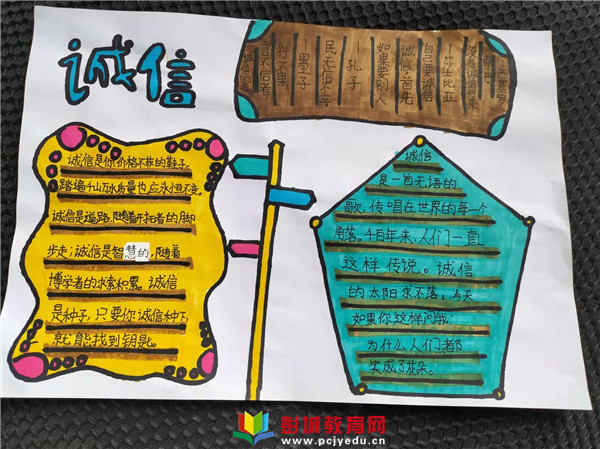 诚信
言不信者
行不果
—墨子
民无信不立
—孔子
如果要别人
诚信,首先
自己要诚信
—莎士比亚
没有诚信何来
诚信是你价格不菲的鞋子,
踏遍千山万水质量也应永恒不变。
诚信是道路,随着开拓者的脚
步走;诚信是智慧的,随着
博学者的求索积累。诚信
是种子,只要你诚信种下
就能找到钥匙。
诚信
是一首无语的
歌,传唱在世界的每一个
角落。千百年来,人们一直
这样传说。诚信
的太阳永不落,今天
如果你这样问我:
为什么人们都
笑成了花朵。
彭城教育网
www.pcjyedu.cn